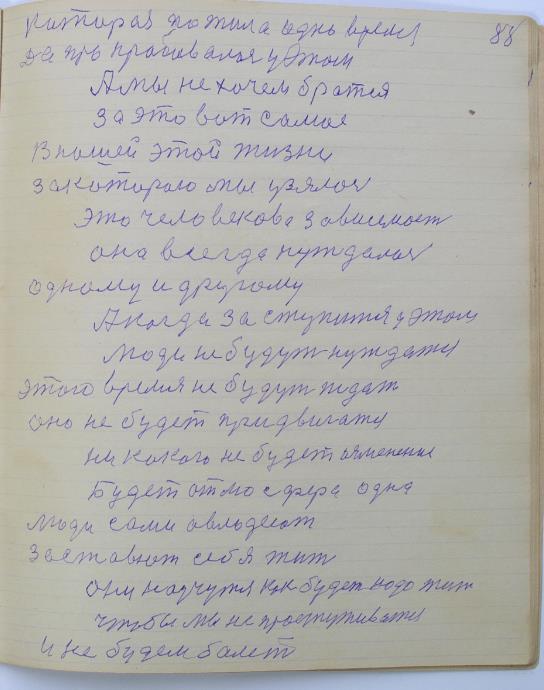 которая пожила однь время 88
да прь прабивалоя у этом
А мы не хочем братся
за это вот самое
В нашей этой жизни
за котораю мы узялоя
это человекова зависимост
она всегда нуждалоя
одному и другому
А когда заступится у этом
люди не будут нуждатя
этого время не будут ждат
оно не будет придвигатя
ни какого не будет
Будет отмосфера одна
люди сами овльдеют
заставют себя жит
они научутя как будет надо жит
чтобы мы не простуживатя
и не будем болет